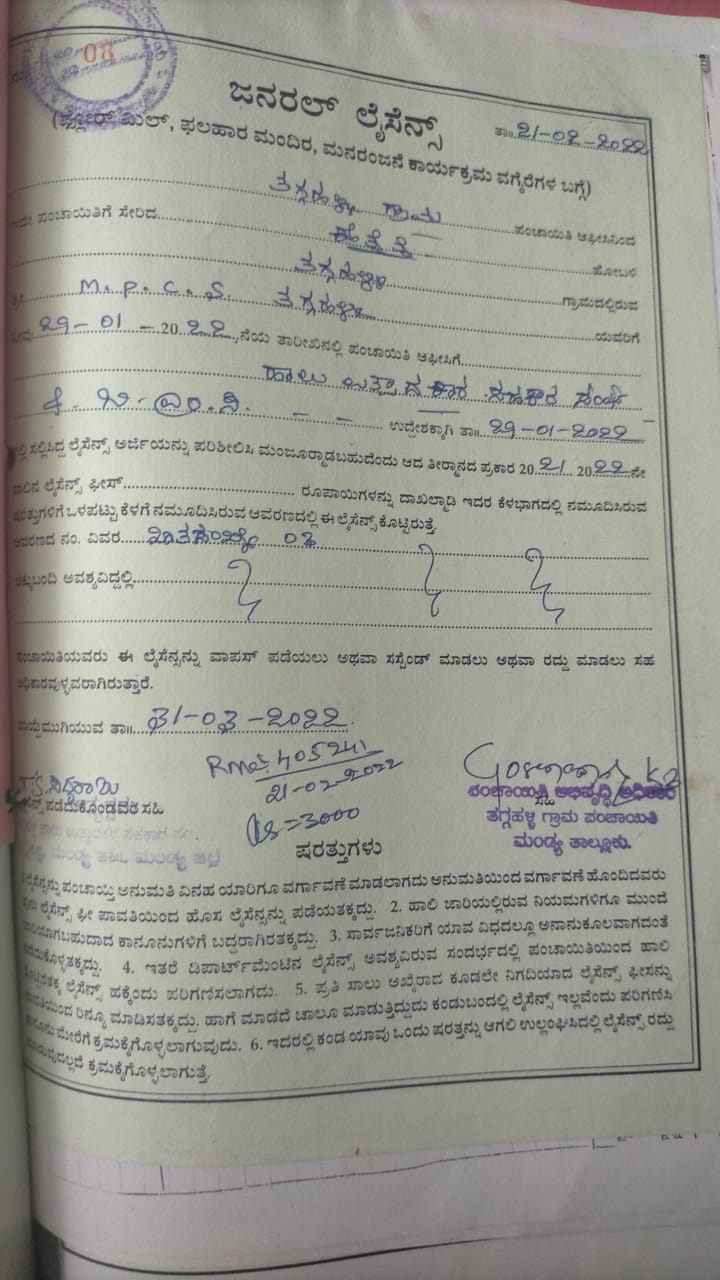 08
ಜನರಲ್ ಲೈಸೆನ್ಸ್
ತಾ॥ 21-02-2022
(ಫ್ಲೋರ್ ಮಿಲ್, ಫಲಹಾರ ಮಂದಿರ, ಮನರಂಜನೆ ಕಾರ್ಯಕ್ರಮ ವಗೈರೆಗಳ ಬಗ್ಗೆ)
ತಗ್ಗಹಳ್ಳಿ ಗ್ರಾಮ ಪಂಚಾಯಿತಿ ಆಫೀಸಿನಿಂದ
ಪಂಚಾಯಿತಿಗೆ ಸೇರಿದ ಹೋಬಳಿ
ತಗ್ಗಹಳ್ಳಿ ಗ್ರಾಮದಲ್ಲಿರುವ
M.P.C.S. ತಗ್ಗಹಳ್ಳಿ ಯವರಿಗೆ
29-01-2022 ನೆಯ ತಾರೀಖಿನಲ್ಲಿ ಪಂಚಾಯಿತಿ ಆಫೀಸಿಗೆ
ಹಾಲು ಉತ್ಪಾದಕರ ಸಹಕಾರ ಸಂಘ
ಬಿ.ಎಂ.ಸಿ. - - ಉದ್ದೇಶಕ್ಕಾಗಿ ತಾ॥ 29-01-2022
ಸಲ್ಲಿಸಿದ್ದ ಲೈಸೆನ್ಸ್ ಅರ್ಜಿಯನ್ನು ಪರಿಶೀಲಿಸಿ ಮಂಜೂರ್ಮಾಡಬಹುದೆಂದು ಆದ ತೀರ್ಮಾನದ ಪ್ರಕಾರ 2021 2022ನೇ
ಸಾಲಿನ ಲೈಸೆನ್ಸ್ ಫೀಸ್ ರೂಪಾಯಿಗಳನ್ನು ದಾಖಲ್ಮಾಡಿ ಇದರ ಕೆಳಭಾಗದಲ್ಲಿ ನಮೂದಿಸಿರುವ
ಷರತ್ತುಗಳಿಗೆ ಒಳಪಟ್ಟು ಕೆಳಗೆ ನಮೂದಿಸಿರುವ ಆವರಣದಲ್ಲಿ ಈ ಲೈಸೆನ್ಸ್ ಕೊಟ್ಟಿರುತ್ತೆ.
ಆವರಣದ ನಂ. ವಿವರ
ಚಕ್ಕುಬಂದಿ ಅವಶ್ಯವಿದ್ದಲ್ಲಿ
ಪಂಚಾಯಿತಿಯವರು ಈ ಲೈಸೆನ್ಸನ್ನು ವಾಪಸ್ ಪಡೆಯಲು ಅಥವಾ ಸಸ್ಪೆಂಡ್ ಮಾಡಲು ಅಥವಾ ರದ್ದು ಮಾಡಲು ಸಹ
ಅಧಿಕಾರವುಳ್ಳವರಾಗಿರುತ್ತಾರೆ.
ವಾಯ್ದೆಮುಗಿಯುವ ತಾ॥ 31-03-2022.
405241
21-02-2022
=3000
ಪಡೆದುಕೊಂಡವರ ಸಹಿ
ಸಹಿ
ಪಂಚಾಯಿತಿ ಅಭಿವೃದ್ಧಿ ಅಧಿಕಾರಿ
ತಗ್ಗಹಳ್ಳಿ ಗ್ರಾಮ ಪಂಚಾಯಿತಿ
ಮಂಡ್ಯ ತಾಲ್ಲೂಕು.
ಷರತ್ತುಗಳು
ಲೈಸೆನ್ಸನ್ನು ಪಂಚಾಯ್ತಿ ಅನುಮತಿ ವಿನಹ ಯಾರಿಗೂ ವರ್ಗಾವಣೆ ಮಾಡಲಾಗದು ಅನುಮತಿಯಿಂದ ವರ್ಗಾವಣೆ ಹೊಂದಿದವರು
ಲೈಸೆನ್ಸ್ ಫೀ ಪಾವತಿಯಿಂದ ಹೊಸ ಲೈಸೆನ್ಸನ್ನು ಪಡೆಯತಕ್ಕದ್ದು. 2. ಹಾಲಿ ಜಾರಿಯಲ್ಲಿರುವ ನಿಯಮಗಳಿಗೂ ಮುಂದೆ
ಜಾರಿಯಾಗಬಹುದಾದ ಕಾನೂನುಗಳಿಗೆ ಬದ್ಧರಾಗಿರತಕ್ಕದ್ದು. 3. ಸಾರ್ವಜನಿಕರಿಗೆ ಯಾವ ವಿಧದಲ್ಲೂ ಅನಾನುಕೂಲವಾಗದಂತೆ
ನಡೆದುಕೊಳ್ಳತಕ್ಕದ್ದು. 4. ಇತರೆ ಡಿಪಾರ್ಟ್‌ಮೆಂಟಿನ ಲೈಸೆನ್ಸ್ ಅವಶ್ಯವಿರುವ ಸಂದರ್ಭದಲ್ಲಿ ಪಂಚಾಯಿತಿಯಿಂದ ಹಾಲಿ
ಕೊಟ್ಟಿರತಕ್ಕ ಲೈಸೆನ್ಸ್ ಹಕ್ಕೆಂದು ಪರಿಗಣಿಸಲಾಗದು. 5. ಪ್ರತಿ ಸಾಲು ಅಖೈರಾದ ಕೂಡಲೇ ನಿಗದಿಯಾದ ಲೈಸೆನ್ಸ್ ಫೀಸನ್ನು
ರಿನ್ಯೂ ಮಾಡಿಸತಕ್ಕದ್ದು. ಹಾಗೆ ಮಾಡದೆ ಚಾಲೂ ಮಾಡುತ್ತಿದ್ದುದು ಕಂಡುಬಂದಲ್ಲಿ ಲೈಸೆನ್ಸ್ ಇಲ್ಲವೆಂದು ಪರಿಗಣಿಸಿ
ಕಾನೂನು ಮೇರೆಗೆ ಕ್ರಮಕೈಗೊಳ್ಳಲಾಗುವುದು. 6. ಇದರಲ್ಲಿ ಕಂಡ ಯಾವು ಒಂದು ಷರತ್ತನ್ನು ಆಗಲಿ ಉಲ್ಲಂಘಿಸಿದಲ್ಲಿ ಲೈಸೆನ್ಸ್ ರದ್ದು
ಮಾಡುವುದಲ್ಲದೆ ಕ್ರಮಕೈಗೊಳ್ಳಲಾಗುತ್ತೆ.